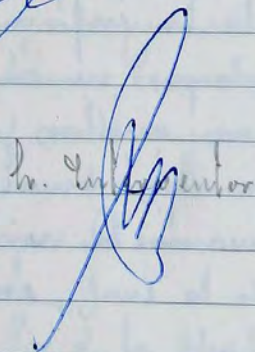 Sr. Interventor